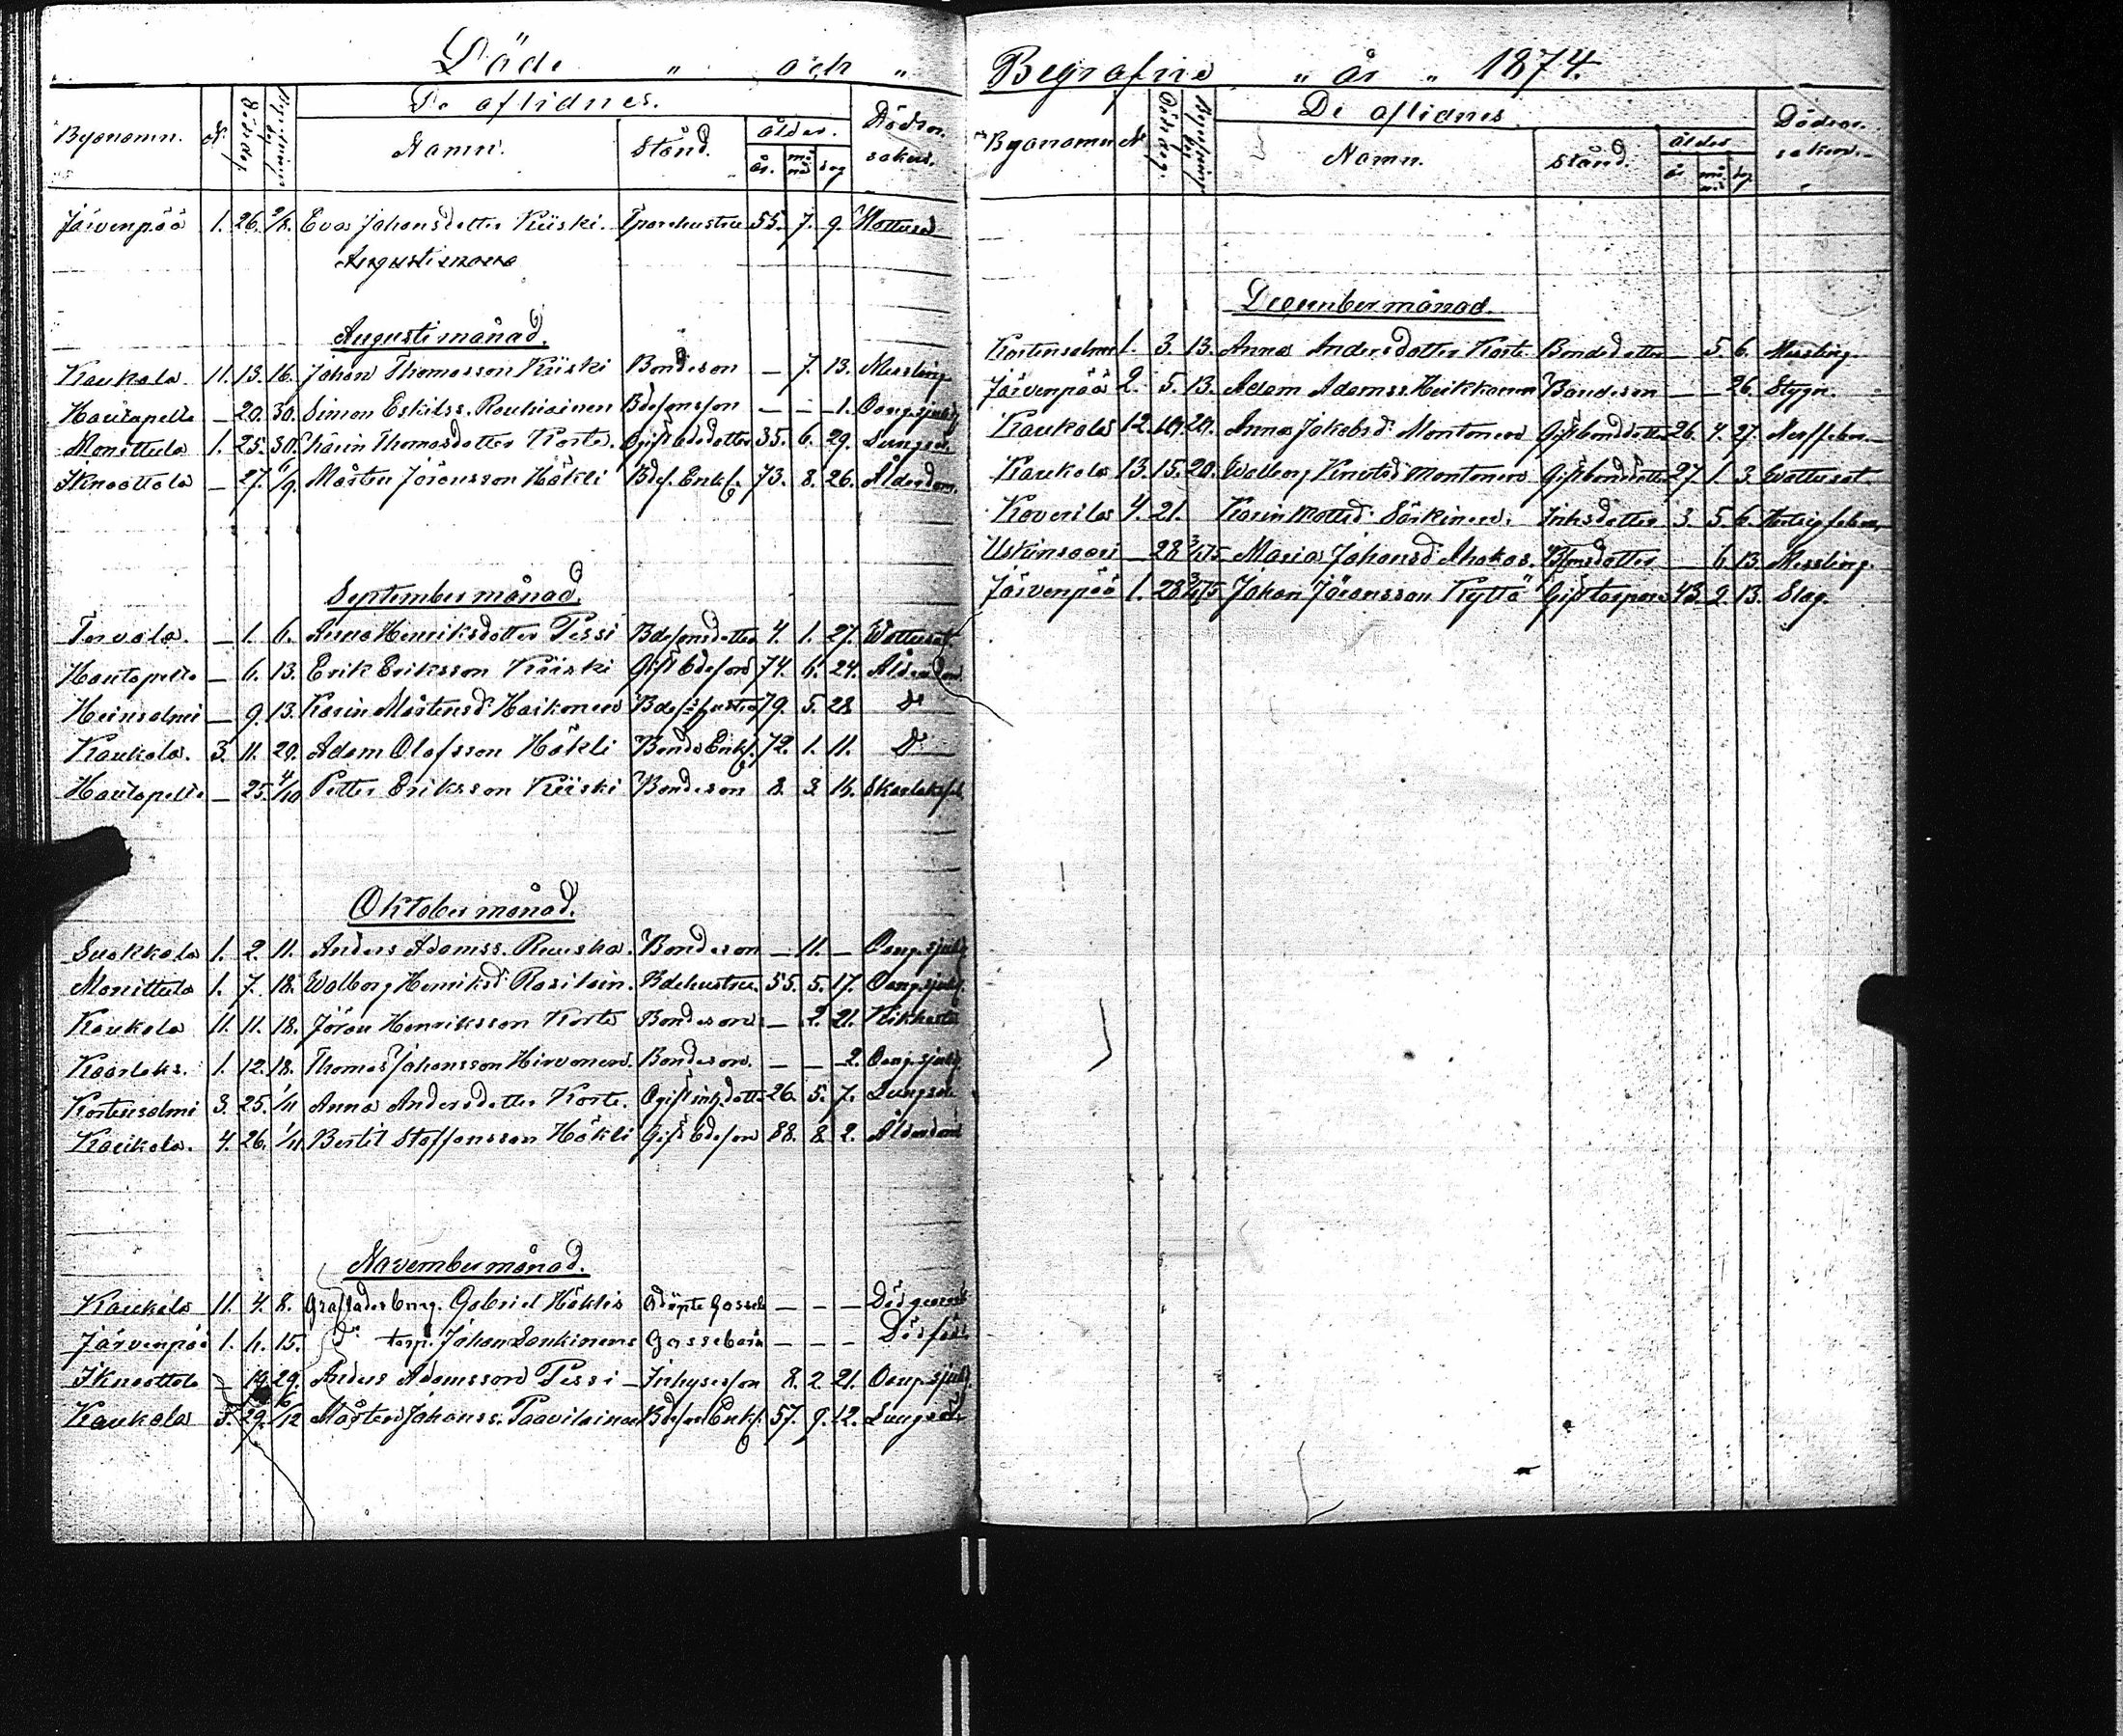 Döde " och "
De aflidnes.
Byanamn. N. Dödsdag Begrafnings dag Namn. Stånd. ålder. Dödsor-
år. må nad dag saken.
Järvenpää 1. 26. 2/8. Eva Johansdotter Kiiski. Tparehustru 55. 7. 9. Wattusot
Augustimånad.
Kaukola 11. 13. 16. Johan Thomasson Kiiski Bondeson — 7. 13. Messling
Hautapelto — 20. 30. Simon Eskilss. Raukiainen Bdesonsson — — 1. Oang. sjukd
Monittula 1. 25. 30. Karin Thomasdotter Korte. Ogift bdedotter 35. 6. 29. Lungsot.
Iknoottola — 27. 6/9. Mårten Jöransson Häkli Bdes. Enkl. 73. 8. 26. Ålderdom.
September månad.
Tervola. — 1. 6. Anna Henriksdotter Pessi Bdesonsdotter 4. 1. 27. Wattusot
Hautapelto — 6. 13. Erik Eriksson Kiiski Gift bdeson 74. 6. 24. Ålderdom
Heinsalmi — 9. 13. Karin Mårtensd. Haikonen Bdes. hustru 79. 5. 28. Do
Kaukola. 3. 11. 20. Adam Olofsson Häkli Bonde Enkl. 72. 1. 11. Do
Hautapelto — 25. 4/10 Petter Eriksson Kiiski Bondeson 8. 3. 14. Skarlaksf.
Oktober månad.
Suokkola 1. 2. 11. Anders Adamss. Ruuska. Bondeson — 11. — Oang. sjukd
Monittula 1. 7. 18. Walborg Henriksd. Rasilain. Bdehustru. 55. 5. 17. Oang. sjukd.
Kaukola 11. 11. 18. Jöran Henriksson Korte Bondeson — 2. 21. Kikhosta
Kaarlaks. 1. 12. 18. Thomas Johansson Hirvonen. Bondeson. — — 2. Oang. sjukd.
Kortensalmi 3. 25. 1/11 Anna Andersdotter Korte. Ogift inh. dotter 26. 5. 7. Lungsot
Kaukola. 4. 26. 1/11. Bertil Staffansson Häkli Gift bdeson 88. 8. 2. Ålderdom
November månad.
Kaukola 11. 4. 8. Gabriel Häklis Odöpte Gosseb. — — — Dödgeno
Järvenpää 1. 4. 15. Do torp. Johan Lankinens Gossebarn — — — Dödfödt
Iknoottola — 19. 29. Anders Adamsson Pessi Inhyseson 8. 2. 21. Oang. sjukd.
Kaukola 5. 29. 6/12 Mårten Johanss. Paavilainen Bdeson Enkl. 57. 9. 12. Lungsot
Begrafne " år " 1874.
De aflidnes
Byanamn N Dödsdag. Begrafnings dag Namn. stånd. ålder Dödsor-
år må nad dag saken.
December månad.
Kortensalmi 1. 3. 13. Anna Andersdotter Korte. Bondedotter — 5. 6. Messling.
Järvenpää 2. 5. 13. Adam Adamss. Heikkonen Bondeson — — 26. Stygn.
Kaukola 12. 10. 20. Anna Jakobsd. Montonen Gift bondedotter 26. 4. 27. Nerffeber.
Kaukola 13. 15. 20. Walborg Knutsd. Montonen Gift bondedotter 27. 1. 3. Wattusot.
Koverila 4. 21. Karin Mattsd. Särkinen. Inhsdotter 3. 5. 6.
Uskinsaari — 28. 3/1 75. Maria Johansd. Ahokas. Bsonsdotter — 6. 13. Messling.
Järvenpää 1. 28. 3/1 75. Johan Jöransson Kyttä Gift torpare 43. 2. 13. Slag.